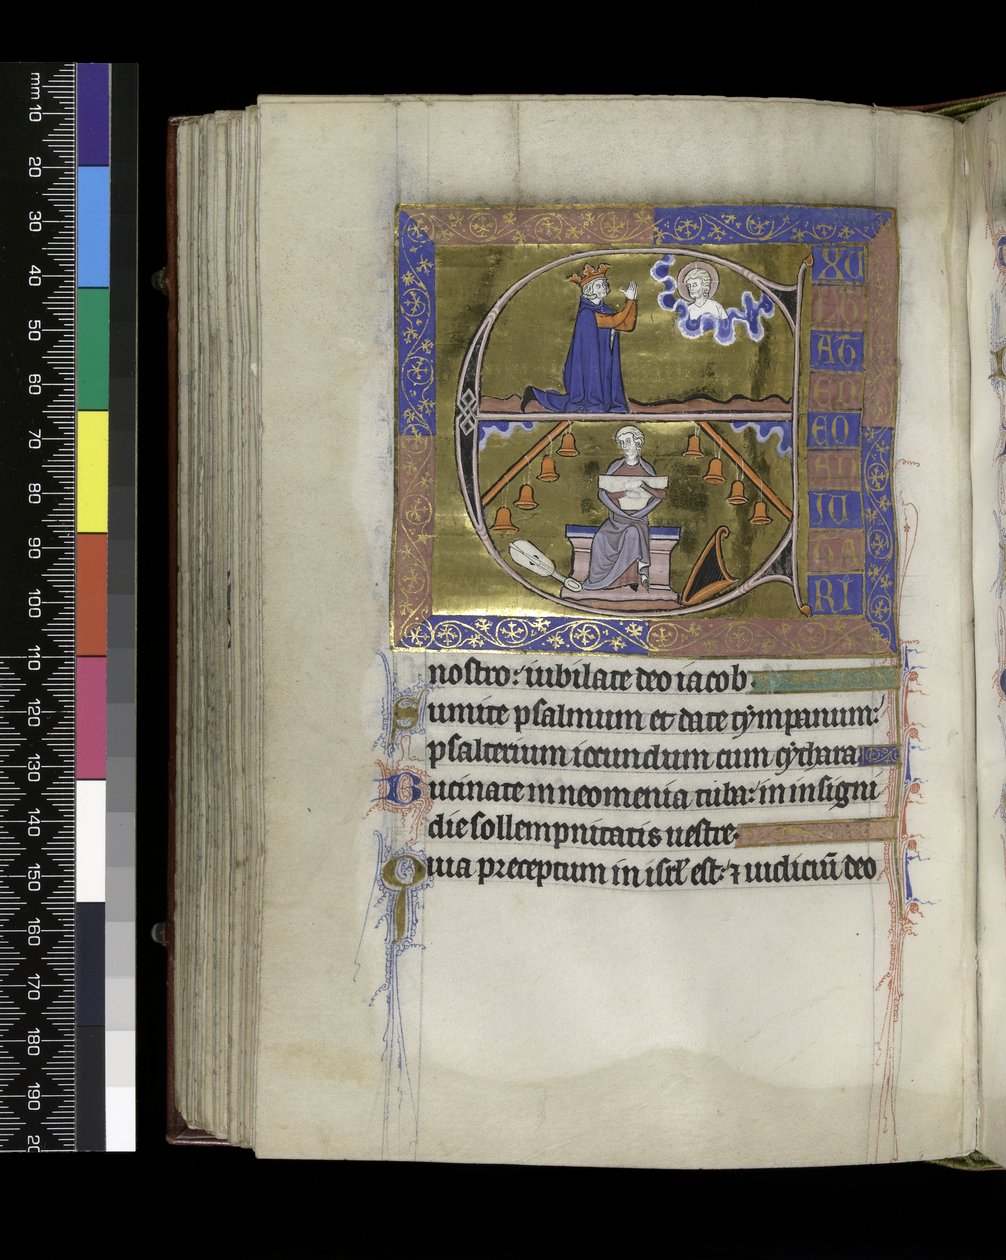 mm 10 20 30 40 50 60 70 80 90 100 110 120 130 140 150 160 170 180 190
E
XU
LG
AT
EU
EO
AU
IU
TA
RI
nostro: iubilate deo iacob.
Sumite psalmum et date tympanum:
psalterium iocundum cum cythara.
Bucinate in neomenia tuba: in insigni
die sollempnitatis uestre.
Quia preceptum in isrł est: ⁊ iudiciū deo